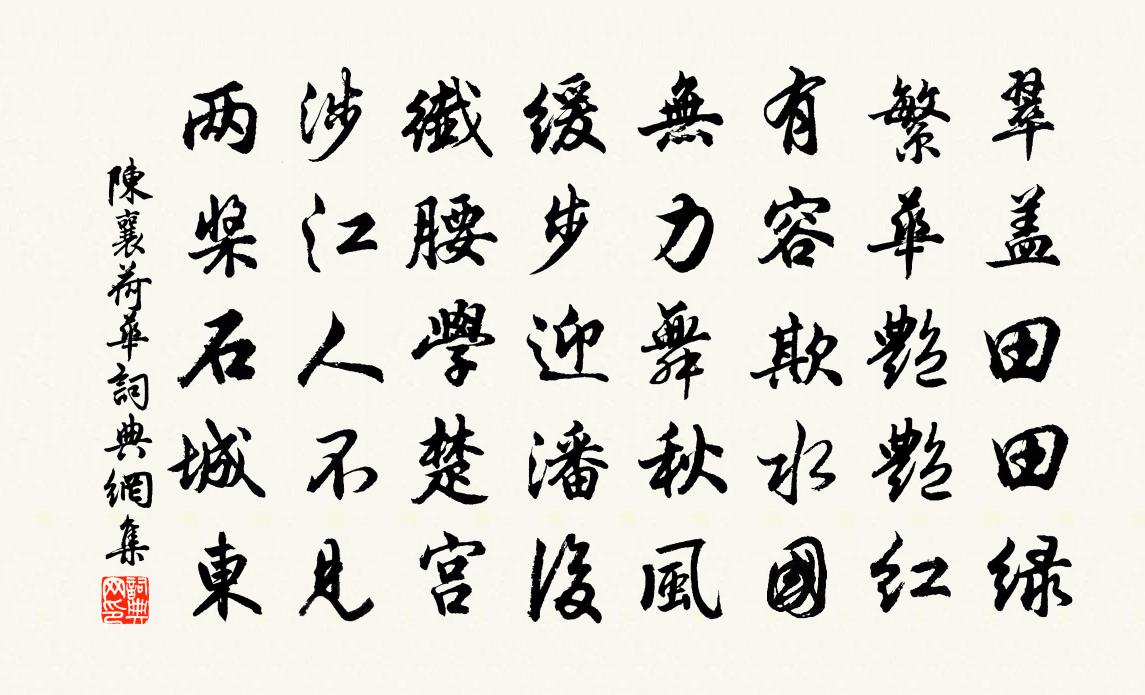 翠盖田田緑
繁華艷艷紅
有容欺水國
無力舞秋風
緩步迎潘後
纖腰學楚宮
涉江人不見
两槳石城東
陳襄荷華詞典網集